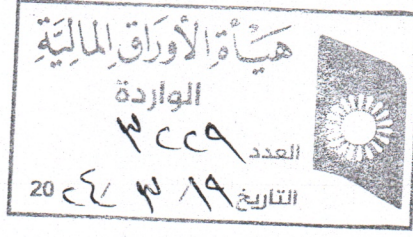 هَيْأَةِ الأَورَاقِ المَالِيَّةِ
الواردة
العدد ٣٢٢٩
التاريخ ١٩/ ٣ / ٢٤ 20